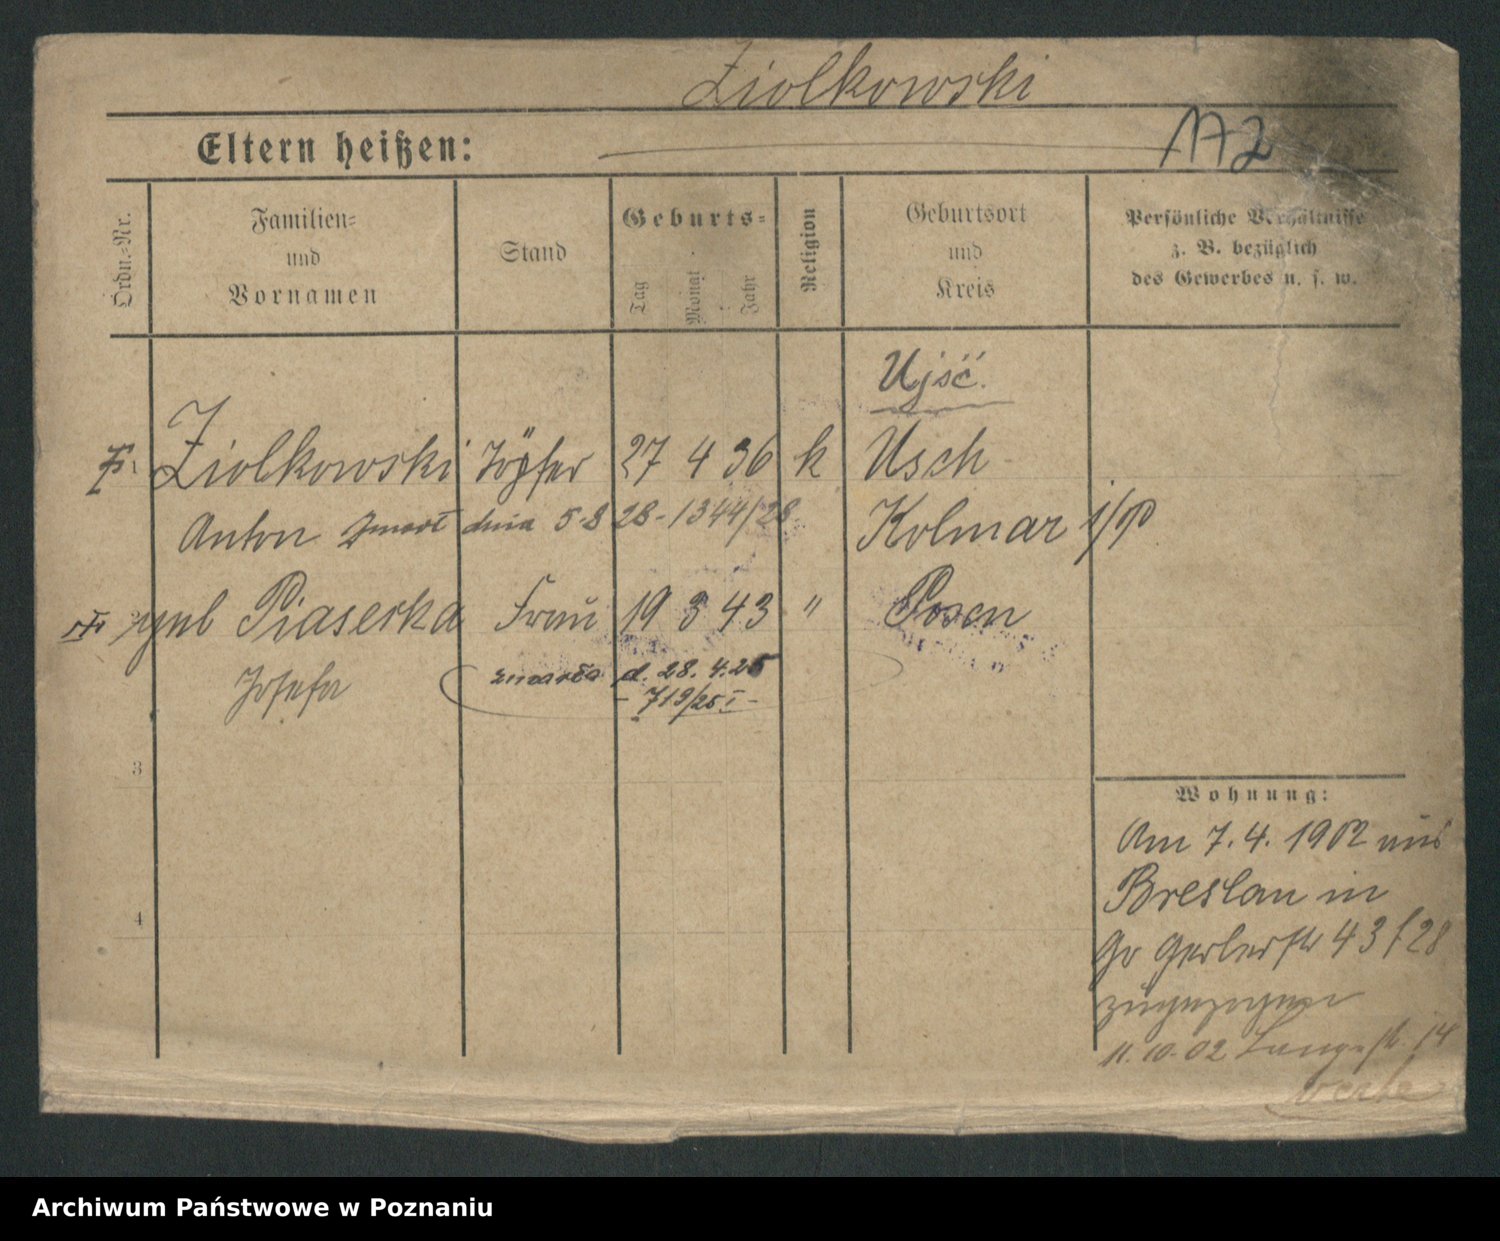 Ziolkowski
Eltern heißen:
172
Ordn.-Nr.
Familien-
und
Vornamen
Stand
Geburts-
Tag
Monat
Jahr
Religion
Geburtsort
und
Kreis
Persönliche Verhältnisse
z. B. bezüglich
des Gewerbes u. s. w.
Ujść.
Ziolkowski Töpfer 27 4 36 k Usch
Anton zmarł dnia 5.8 28 - 1344/28 Kolmar i/P
geb Piaserka Frau 19 3 43 " Posen
Josefa zmarła d. 28. 4. 25
- 719/25 I -
3
Wohnung:
4
Am 7. 4. 1902 aus
Breslau in
Gr Gerberstr 43 / 28
zugezogen
11. 10. 02 Langestr. 14
Archiwum Państwowe w Poznaniu